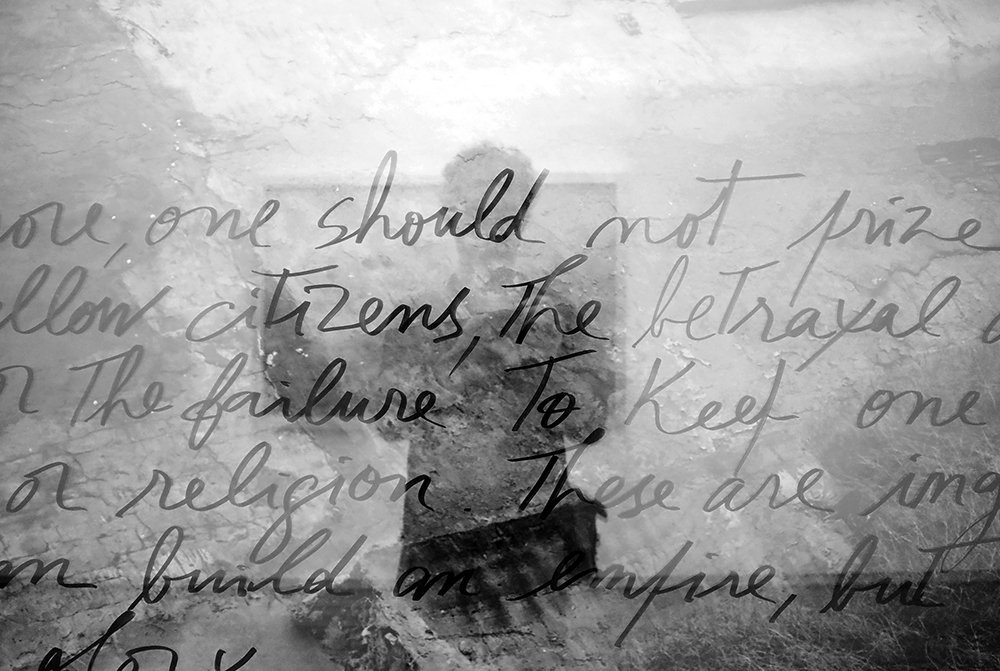 ore, one should not prize
llow citizens, the betrayal
or the failure to Keep one
or religion. These are ing
an build an empire, but
glory.